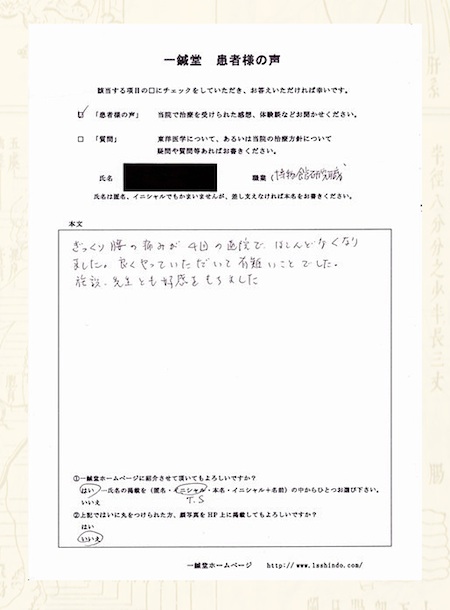 一鍼堂 患者様の声
該当する項目の□にチェックをしていただき、お答えいただければ幸いです。
☑ 「患者様の声」 当院で治療を受けられた感想、体験談などお聞かせください。
□ 「質問」 東洋医学について、あるいは当院の治療方針について
疑問や質問等あればお書きください。
氏名 職業（博物館研究職）
氏名は匿名、イニシャルでもかまいませんが、差し支えなければ本名をお書きください。
本文
ぎっくり腰の痛みが4回の通院で、ほとんどなくなり
ました。良くやっていただいて有難いことでした。
施設、先生とも好感をもちました
①一鍼堂ホームページに紹介させて頂いてもよろしいですか？
はい－氏名の掲載を（匿名・イニシャル・本名・イニシャル＋名前）の中からひとつお選び下さい。
いいえ T.S
②上記ではいに丸をつけられた方、顔写真をHP上に掲載してもよろしいですか？
はい
いいえ
一鍼堂ホームページ http://www.1sshindo.com/